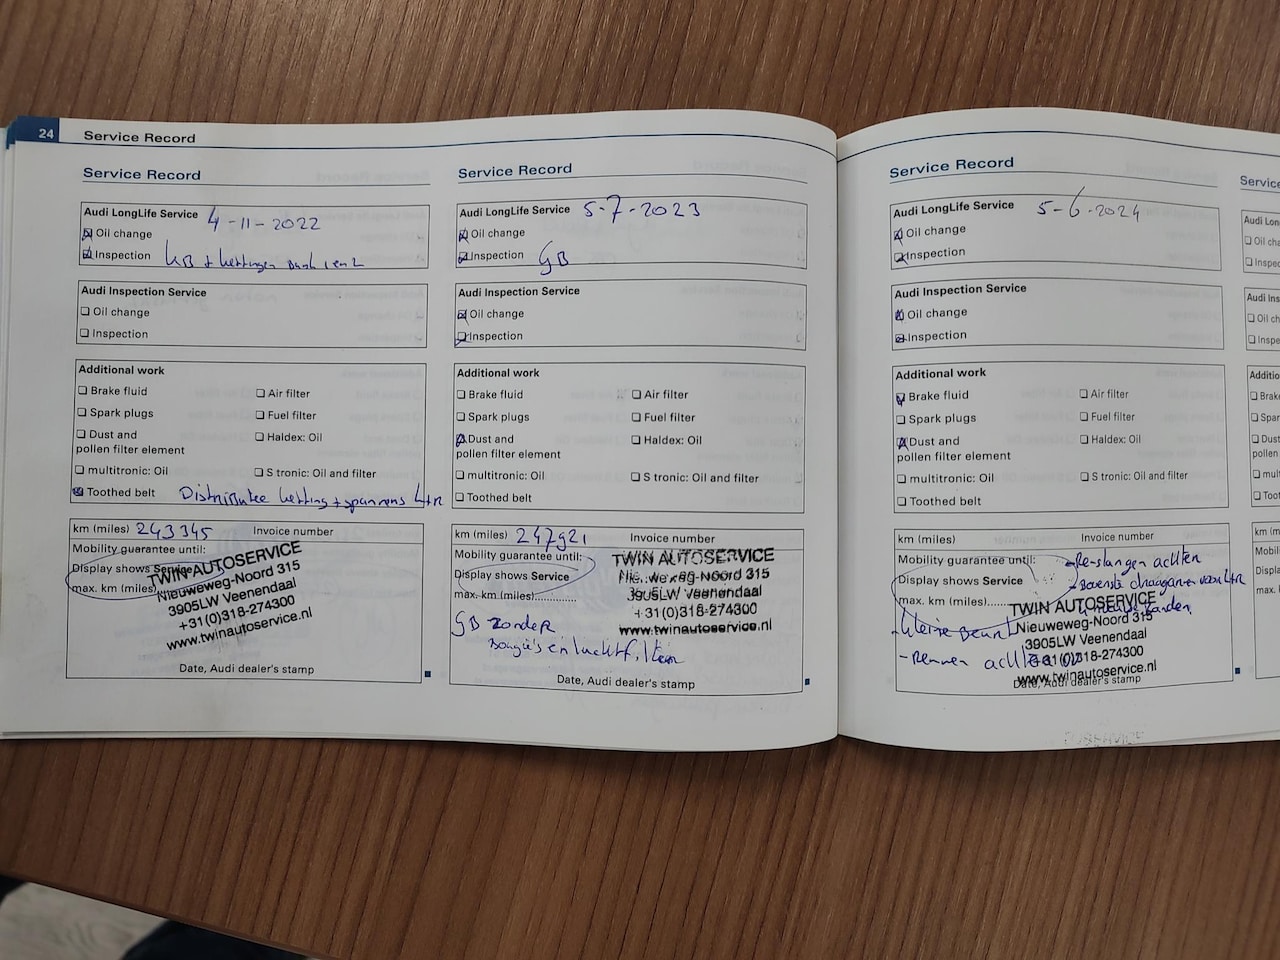 24 Service Record
Service Record
Audi LongLife Service 4-11-2022
Oil change
Inspection KB + kettingen Bank 1 en 2
Audi Inspection Service
Oil change
Inspection
Additional work
Brake fluid Air filter
Spark plugs Fuel filter
Dust and Haldex: Oil
pollen filter element
multitronic: Oil S tronic: Oil and filter
Toothed belt Distributie ketting + spanners L+R
km (miles) 243345 Invoice number
Mobility guarantee until:
Display shows Service
max. km (miles)
TWIN AUTOSERVICE
Nieuweweg-Noord 315
3905LW Veenendaal
+31(0)318-274300
www.twinautoservice.nl
Date, Audi dealer's stamp
Service Record
Audi LongLife Service 5-7-2023
Oil change
Inspection GB
Audi Inspection Service
Oil change
Inspection
Additional work
Brake fluid Air filter
Spark plugs Fuel filter
Dust and Haldex: Oil
pollen filter element
multitronic: Oil S tronic: Oil and filter
Toothed belt
km (miles) 247921 Invoice number
Mobility guarantee until:
Display shows Service
max. km (miles)..............
TWIN AUTOSERVICE
Nieuweweg-Noord 315
3905LW Veenendaal
+31(0)318-274300
www.twinautoservice.nl
GB zonder
Bougie's en luchtfilter
Date, Audi dealer's stamp
Service Record
Audi LongLife Service 5-6-2024
Oil change
Inspection
Audi Inspection Service
Oil change
Inspection
Additional work
Brake fluid Air filter
Spark plugs Fuel filter
Dust and Haldex: Oil
pollen filter element
multitronic: Oil S tronic: Oil and filter
Toothed belt
km (miles) Invoice number
Mobility guarantee until:
Display shows Service
max. km (miles)
- Remslangen achter
- Bovenste draagarmen voor L+R
- Kleine Beurt
- Remmen achter
TWIN AUTOSERVICE
Nieuweweg-Noord 315
3905LW Veenendaal
+31(0)318-274300
www.twinautoservice.nl
Date, Audi dealer's stamp
Servic
Audi Lon
Oil ch
Inspec
Audi Ins
Oil ch
Inspe
Additio
Brake
Spark
Dust
pollen
mult
Toot
km (m
Mobil
Displ
max.